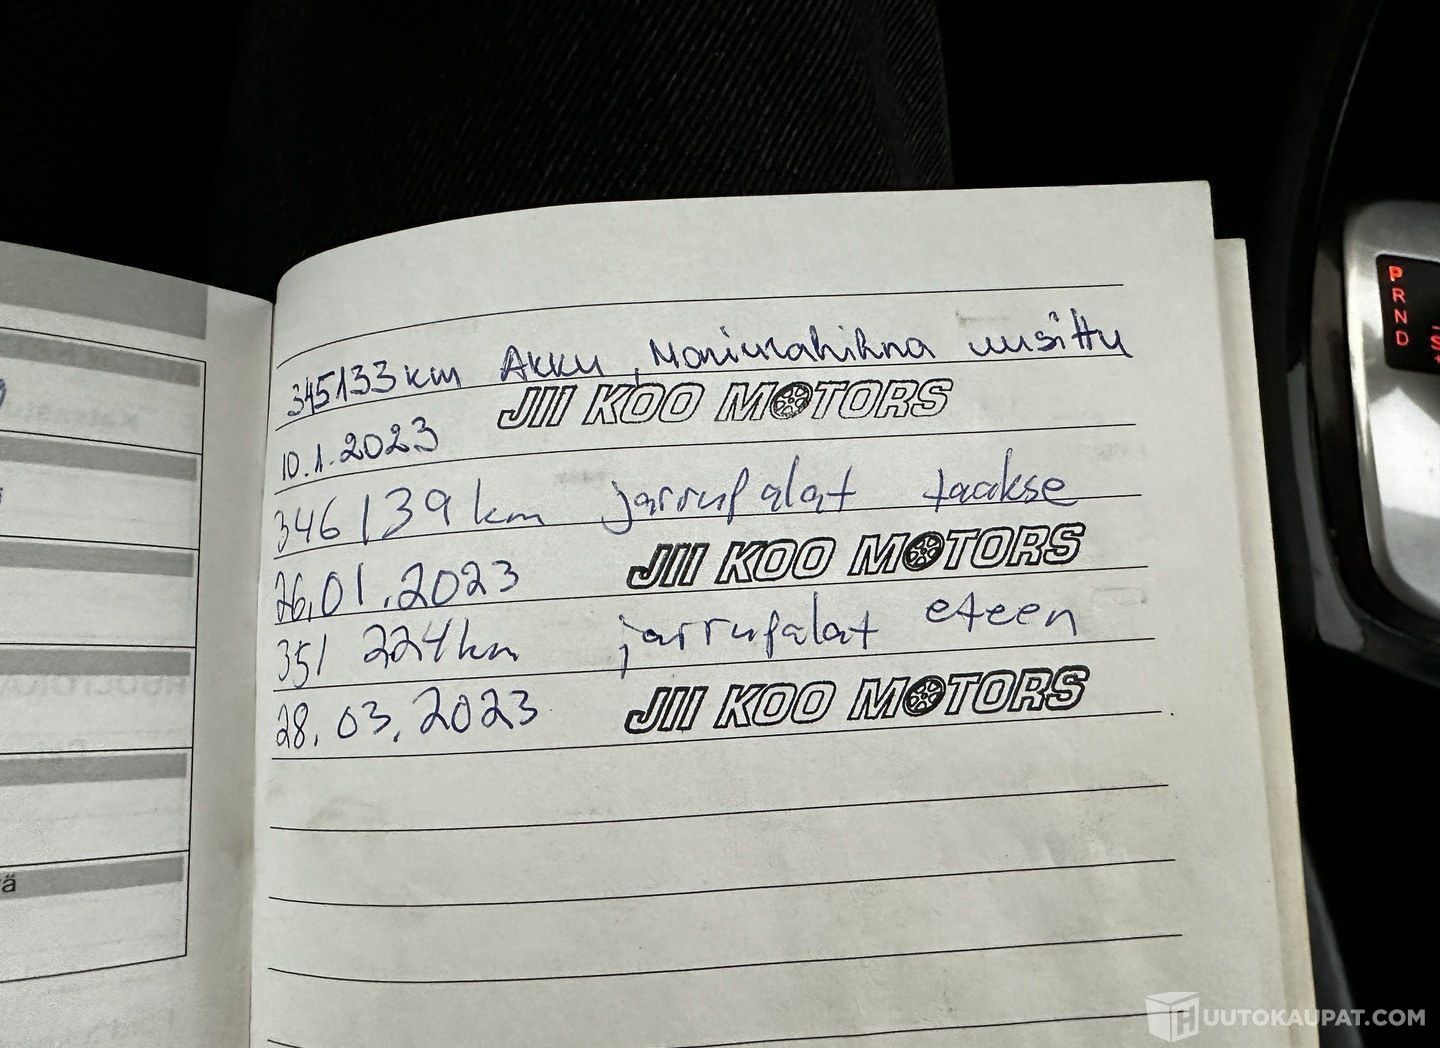 345133 km Akku, Moniurahihna uusittu
JII KOO MOTORS
10.1.2023
346139 km jarrupalat taakse
26.01.2023 JII KOO MOTORS
351 224 km jarrupalat eteen
28.03.2023 JII KOO MOTORS
ä
P
R
N
D
S
UUTOKAUPAT.COM